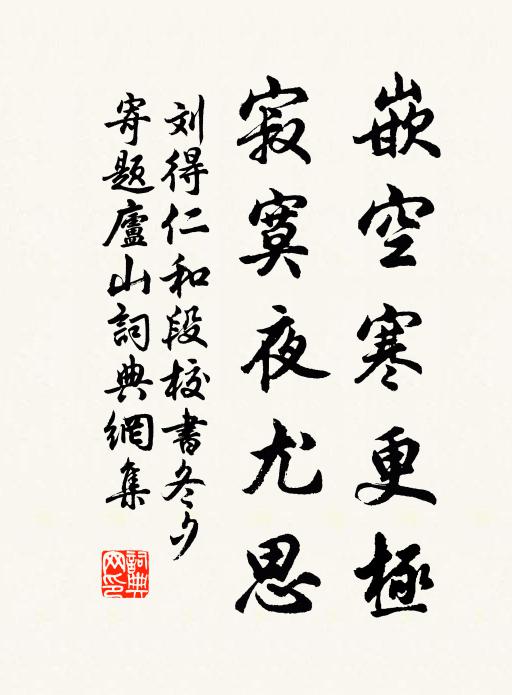 嵌空寒更極
寂寞夜尤思
刘得仁和段校書冬夕
寄題廬山詞典網集
詞典网印